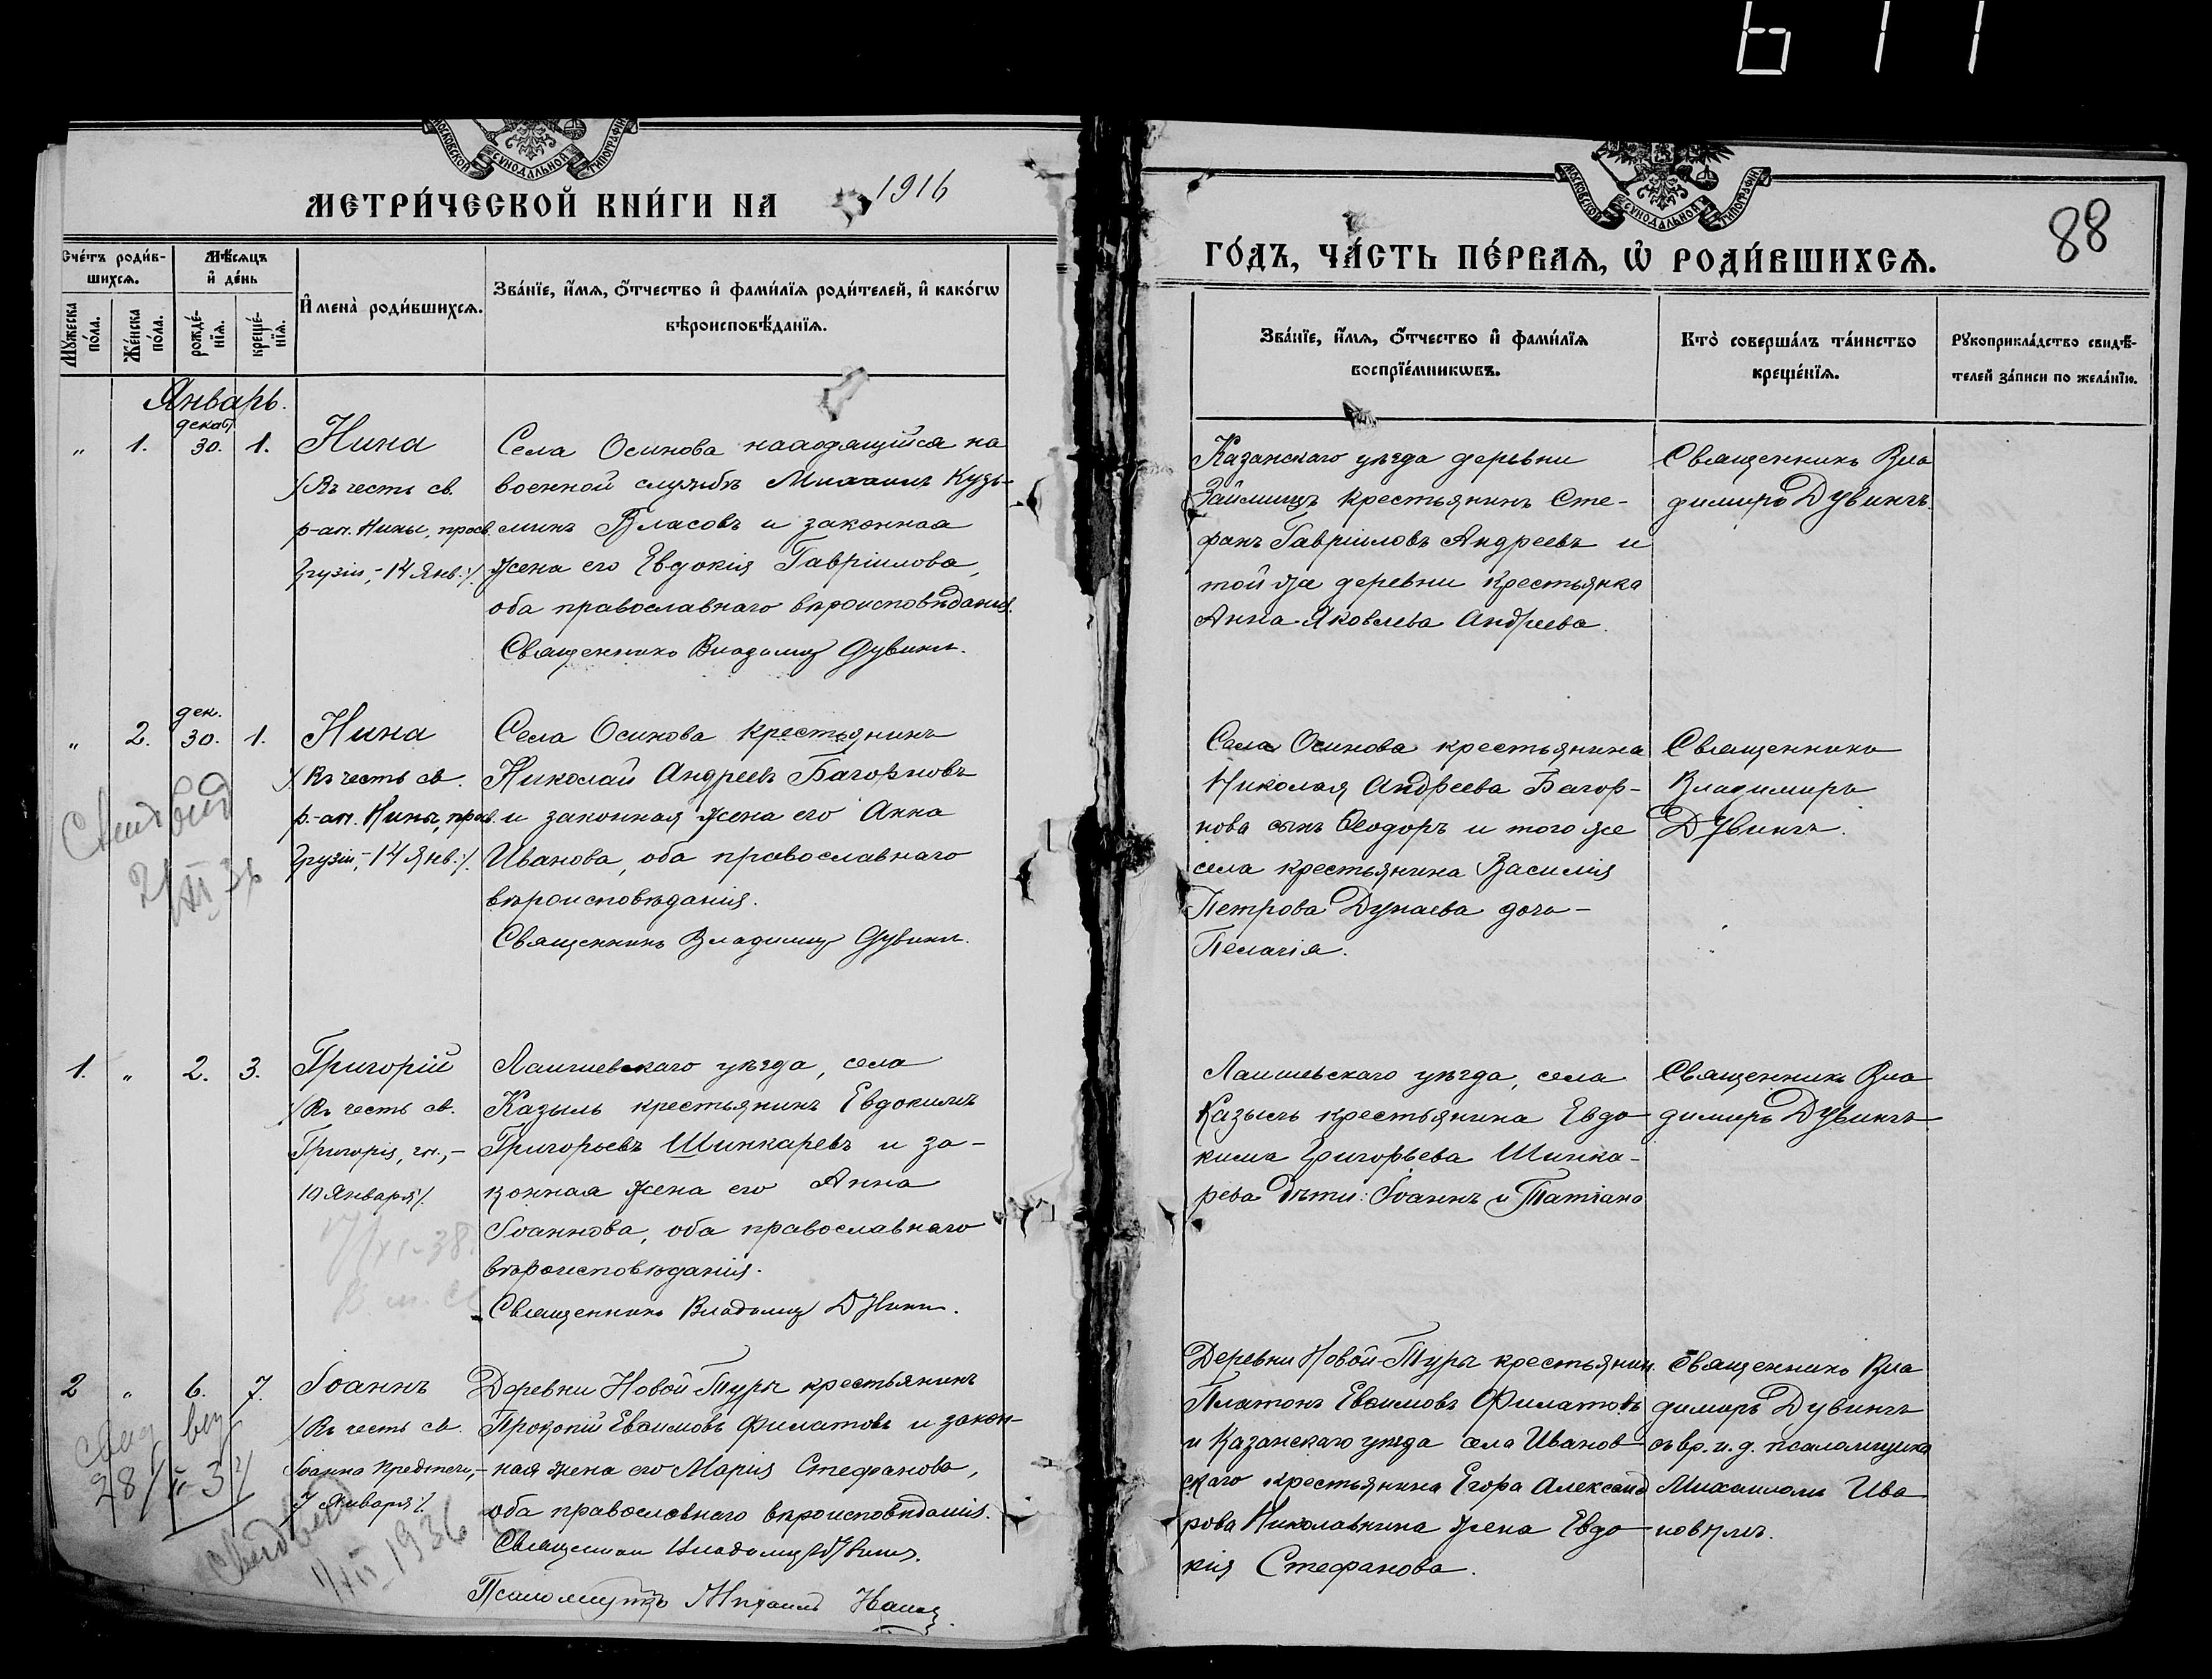 611
МОСКОВСКОЙ СѴНОДАЛЬНОЙ ТИПОГРАФІИ
МЕТРИ́ЧЕСКОЙ КНИ́ГИ НА 1916
Сче́тъ роди́в-
шихсѧ.
Мꙋ́жеска
по́ла.
Же́нска
по́ла.
Мѣ́сѧцъ
и҆ де́нь
рожде́-
нїѧ.
креще́-
нїѧ.
И҆мена̀ роди́вшихсѧ.
Зва́нїе, и҆́мѧ, ѻ҆́тчество и҆ фами́лїѧ роди́телей, и҆ како́гѡ
вѣроисповѣ́данїѧ.
Январь.
декаб.
„ 1. 30. 1.
Нина
/Въ честь св.
р-ап. Нины, просв.
Грузіи, - 14 Янв./.
Села Осинова находящійся на
военной службѣ Михаилъ Кузь-
минъ Власовъ и законная
жена его Евдокія Гавріилова,
оба православнаго вѣроисповѣданія.
Священникъ Владимір Дувинг.
дек.
„ 2. 30. 1.
Нина
/Въ честь св.
р.-ап. Нины, просв.
Грузіи, - 14 Янв./.
Села Осинова крестьянинъ
Николай Андреевъ Багорновъ
и законная жена его Анна
Иванова, оба православнаго
вѣроисповѣданія.
Священникъ Владимір Дувинг.
1. „ 2. 3.
Григорій
/Въ честь св.
Григорія, еп., -
10 Января/.
Лаишевскаго уѣзда, села
Казыль крестьянинъ Евдокимъ
Григорьевъ Шинкаревъ и за-
конная жена его Анна
Іоаннова, оба православнаго
вѣроисповѣданія.
Священникъ Владимір Дувинг.
2 „ 6. 7.
Іоаннъ
/Въ честь св.
Іоанна Предтечи, -
7 Января/.
Деревни Новой-Туры крестьянинъ
Прокопій Евѳимовъ Филатовъ и закон-
ная жена его Марія Стефанова,
оба православнаго вѣроисповѣданія.
Священник Владимір Дувинг.
Псаломщикъ Михаилъ Иванов.
1936
ГО́ДЪ, ЧА́СТЬ ПЕ́РВАѦ, Ѡ҆ РОДИ́ВШИХСѦ.
88
МОСКОВСКОЙ СѴНОДАЛЬНОЙ ТИПОГРАФІИ
Зва́нїе, и҆́мѧ, ѻ҆́тчество и҆ фами́лїѧ
воспрїе́мникѡвъ.
Кто̀ соверша́лъ та́инство
креще́нїѧ.
Рꙋкоприкла́дство свидѣ́-
телей за́писи по жела́нїю.
Казанскаго уѣзда деревни
Займищъ крестьянинъ Сте-
фанъ Гавріиловъ Андреевъ и
той же деревни крестьянка
Анна Яковлева Андреева.
Священникъ Вла
димиръ Дувингъ.
Села Осинова крестьянина
Николая Андреева Багор-
нова сынъ Ѳеодоръ и того же
села крестьянина Василія
Петрова Дунаева дочь -
Пелагія.
Священникъ
Владимиръ
Дувингъ.
Лаишевскаго уѣзда, села
Казыль крестьянина Евдо
кима Григорьева Шинка-
рева дѣти: Іоаннъ и Татіана
Священникъ Вла
димиръ Дувингъ
Деревни Новой-Туры крестьянин.
Платонъ Евѳимовъ Филатовъ
и Казанскаго уѣзда села Иванов
скаго крестьянина Егора Александ
рова Николавнина жена Евдо
кія Стефанова.
Священникъ Вла
димиръ Дувингъ
съ вр. и. д. псаломщика
Михаиломъ Ива
новымъ.